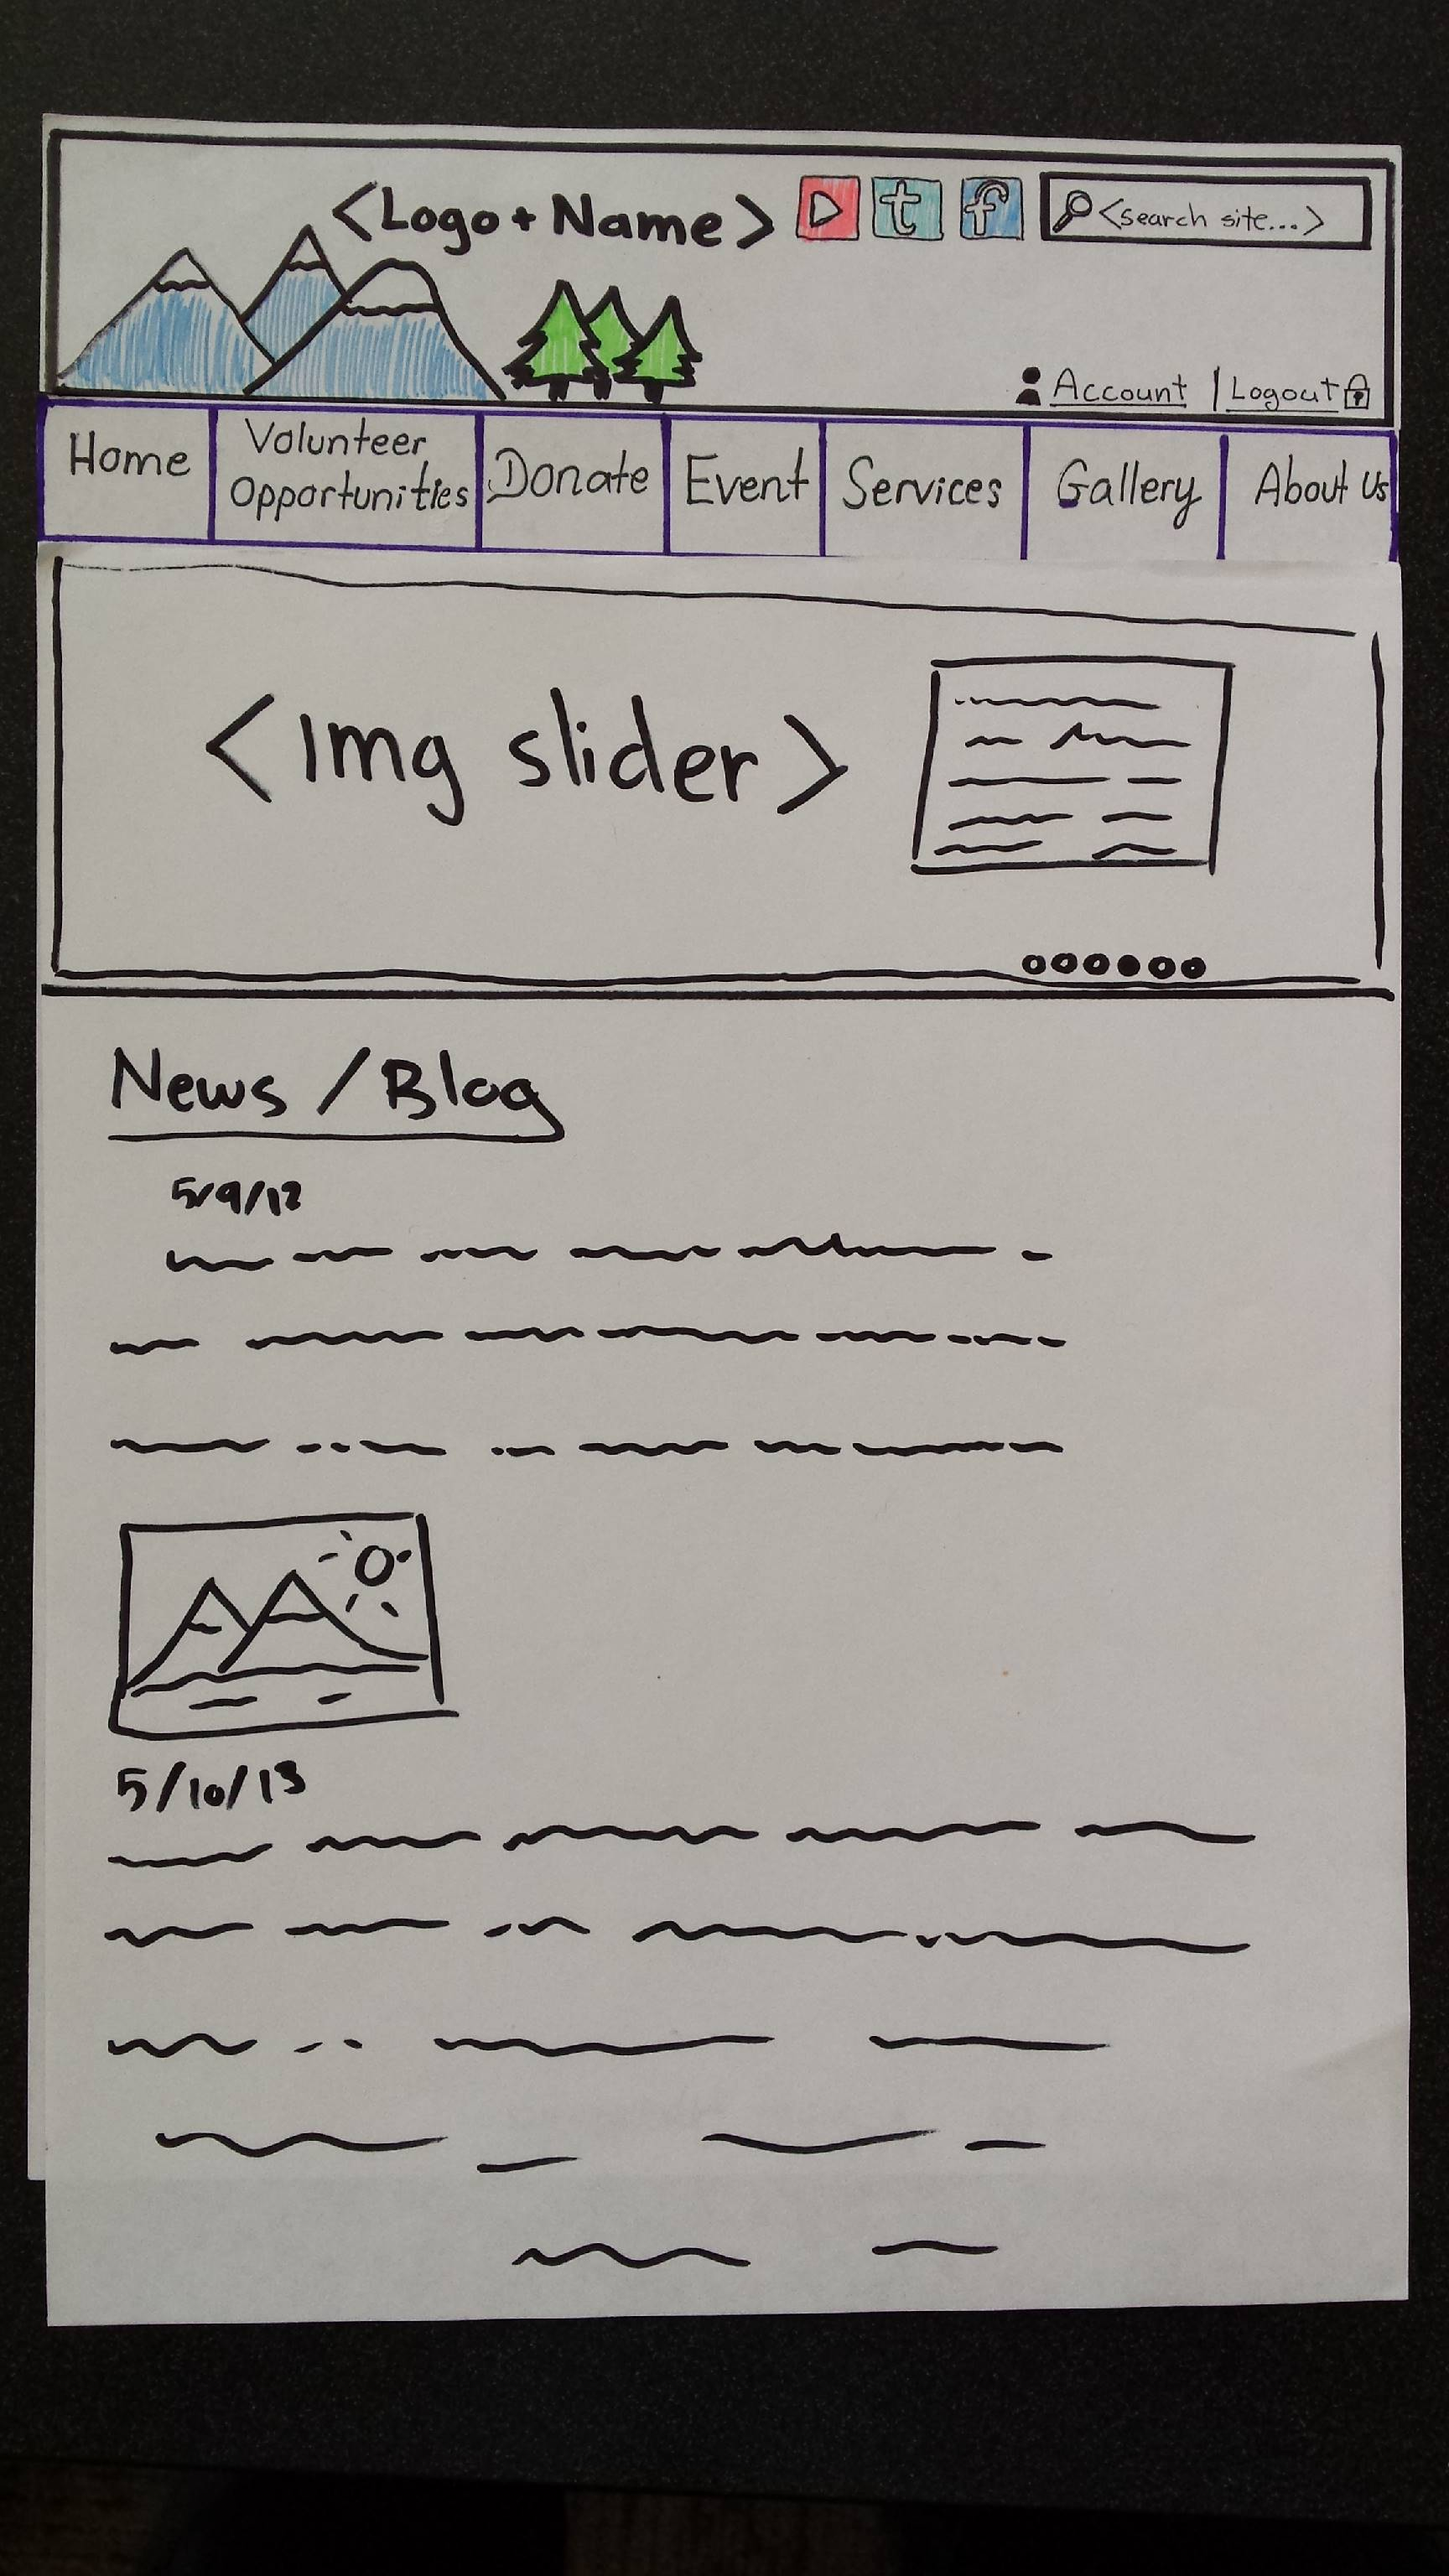 <Logo + Name>
t
f
<search site...>
Account | Logout
Home
Volunteer
Opportunities
Donate
Event
Services
Gallery
About Us
<Img slider>
News / Blog
5/9/12
5/10/13